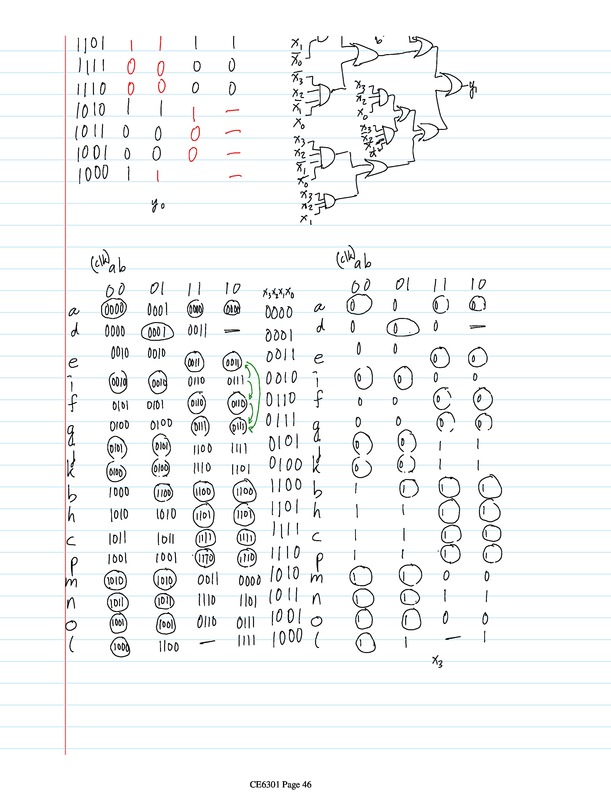 1101 1 1 1 1
1111 0 0 0 0
1110 0 0 0 0
1010 1 1 1 –
1011 0 0 0 –
1001 0 0 0 –
1000 1 1 –
y0
x1
x̄0
x̄3
x2
x̄1
x0
x3
x2
x̄1
x̄0
x3
x̄2
x1
x3
x̄2
x0
x̄3
x2
y1
(clk) ab
00 01 11 10 x3x2x1x0
a 0000 0001 0000 0000 0000
d 0000 0001 0011 – 0001
e 0010 0010 0011 0011 0011
i 0010 0010 0110 0111 0010
f 0101 0101 0110 0110 0110
g 0100 0100 0111 0111 0111
j 0101 0101 1100 1111 0101
k 0100 0100 1110 1101 0100
b 1000 1100 1100 1100 1100
h 1010 1010 1101 1101 1101
c 1011 1011 1111 1111 1111
p 1001 1001 1110 1110 1110
m 1010 1010 0011 0000 1010
n 1011 1011 1110 1101 1011
o 1001 1001 0110 0111 1001
l 1000 1100 – 1111 1000
(clk) ab
00 01 11 10
a 0 0 0 0
d 0 0 0 –
e 0 0 0 0
i 0 0 0 0
f 0 0 0 0
g 0 0 0 0
j 0 0 1 1
k 0 0 1 1
b 1 1 1 1
h 1 1 1 1
c 1 1 1 1
p 1 1 1 1
m 1 1 0 0
n 1 1 1 1
o 1 1 0 0
l 1 1 – 1
x3
CE6301 Page 46